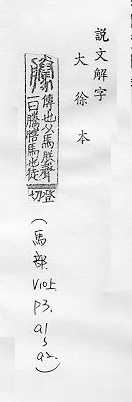 說文解字
大徐本
傳也从馬朕聲
一曰騰犗馬也徒
登
切
(馬部
V10上
P3.
a1
~
a2.)